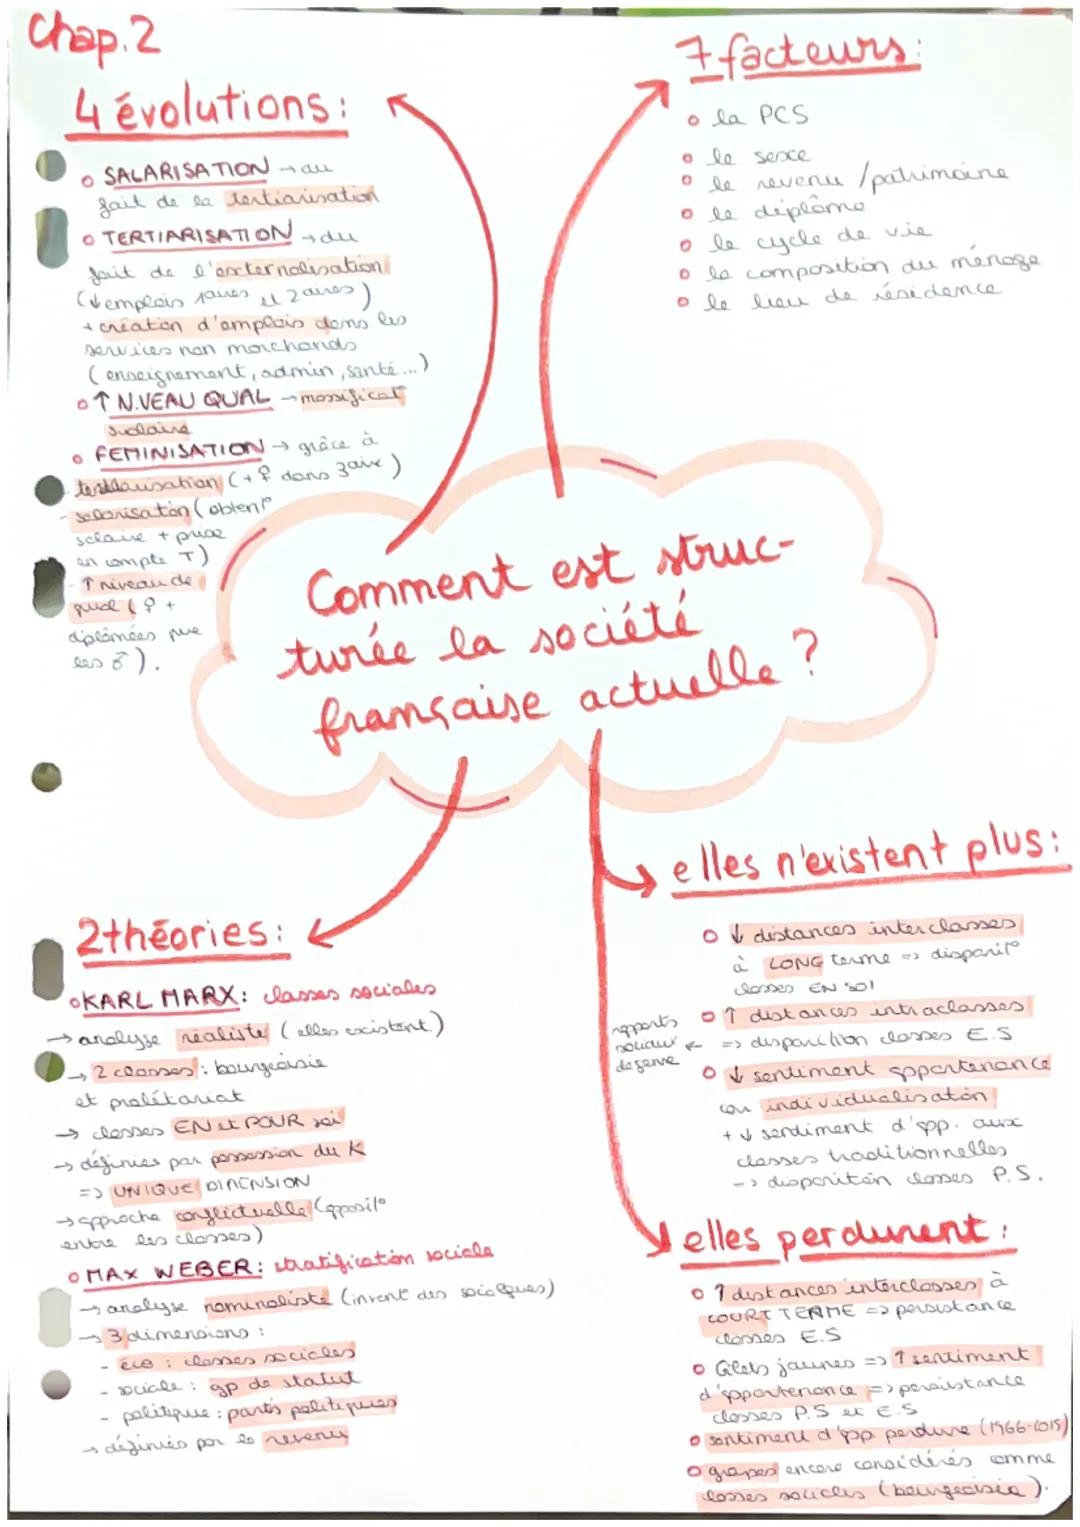 Chap. 2
4 évolutions:
SALARISATION → du
fait de la tertiarisation
TERTIARISATION → du
fait de l'externalisation
(↓ emplois 1aires et 2aires)
+ création d'emplois dans les
services non marchands
(enseignement, admin, santé...)
↑ NIVEAU QUAL → massificat°
scolaire
FEMINISATION → grâce à
- tertiarisation (+ ♀ dans 3aire)
- salarisation (obtent°
salaire + prise
en compte T)
- ↑ niveau de
qual (♀ +
diplômées que
les ♂).
7 facteurs:
la PCS
le sexe
le revenu / patrimoine
le diplôme
le cycle de vie
la composition du ménage
le lieu de résidence
Comment est struc-
turée la société
française actuelle ?
2 théories:
KARL MARX: classes sociales
→ analyse réaliste (elles existent)
→ 2 classes : bourgeoisie
et prolétariat
→ classes EN et POUR soi
→ définies par possession du K
=> UNIQUE DIMENSION
→ approche conflictuelle (opposit°
entre les classes)
MAX WEBER: stratification sociale
→ analyse nominaliste (invent des sociologues)
→ 3 dimensions :
- éco : classes sociales
- sociale : gp de statut
- politique : partis politiques
→ définies par le revenu
elles n'existent plus:
↓ distances interclasses
à LONG terme => disparit°
classes EN SOI
↑ distances intraclasses
=> disparition classes E.S
rapports
sociaux ←
de genre
↓ sentiment appartenance
car individualisation
+ ↓ sentiment d'app. aux
classes traditionnelles
-> disparition classes P.S.
elles perdurent :
↑ distances interclasses à
COURT TERME => persistance
classes E.S
Gilets jaunes => ↑ sentiment
d'appartenance => persistance
classes P.S et E.S
sentiment d'app perdure (1966-2015)
groupes encore considérés comme
classes sociales (bourgeoisie).